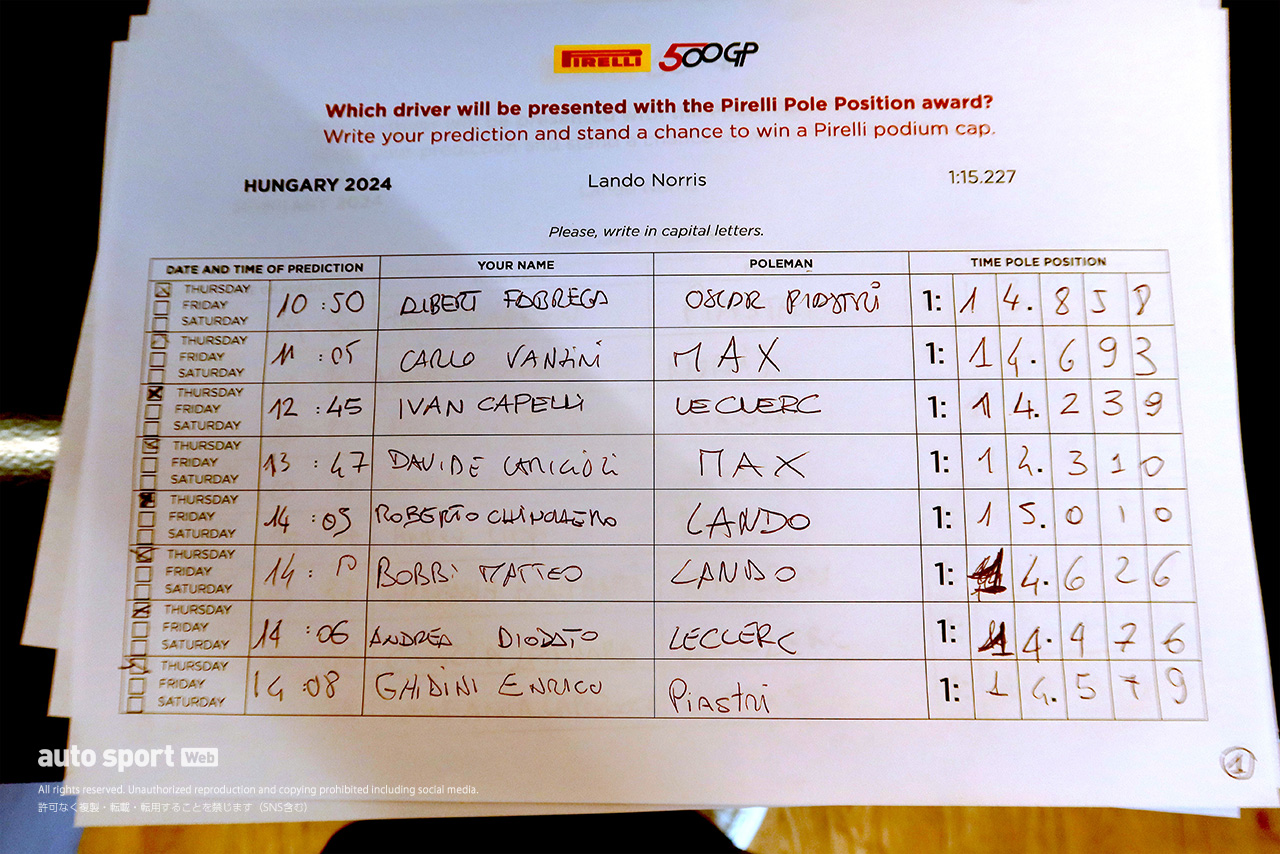 PIRELLI 500GP
Which driver will be presented with the Pirelli Pole Position award?
Write your prediction and stand a chance to win a Pirelli podium cap.
HUNGARY 2024 Lando Norris 1:15.227
Please, write in capital letters.
DATE AND TIME OF PREDICTION YOUR NAME POLEMAN TIME POLE POSITION
THURSDAY
FRIDAY
SATURDAY
10:50 ALBERT FABREGA OSCAR PIASTRI 1: 14.858
THURSDAY
FRIDAY
SATURDAY
11:05 CARLO VANZINI MAX 1: 14.693
THURSDAY
FRIDAY
SATURDAY
12:45 IVAN CAPELLI LECLERC 1: 14.239
THURSDAY
FRIDAY
SATURDAY
13:47 DAVIDE MAX 1: 14.310
THURSDAY
FRIDAY
SATURDAY
14:05 ROBERTO CHINCHERO LANDO 1: 15.010
THURSDAY
FRIDAY
SATURDAY
14: BOBBI MATTEO LANDO 1: 14.626
THURSDAY
FRIDAY
SATURDAY
14:06 ANDREA DIODATO LECLERC 1: 14.476
THURSDAY
FRIDAY
SATURDAY
14:08 GHIDINI ENRICO PIASTRI 1: 14.579
1
auto sport Web
All rights reserved. Unauthorized reproduction and copying prohibited including social media.
許可なく複製・転載・転用することを禁じます（SNS含む）